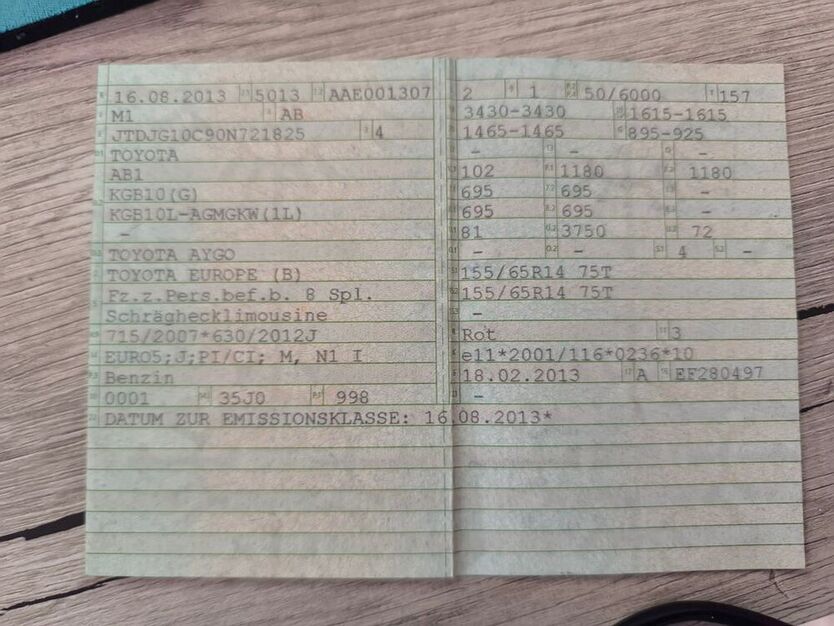 16.08.2013 5013 AAE001307
M1 AB
JTDJG10C90N721825 4
TOYOTA
AB1
KGB10(G)
KGB10L-AGMGKW(1L)
-
TOYOTA AYGO
TOYOTA EUROPE (B)
Fz.z.Pers.bef.b. 8 Spl.
Schräghecklimousine
715/2007*630/2012J
EURO5;J;PI/CI; M, N1 I
Benzin
0001 35J0 998
DATUM ZUR EMISSIONSKLASSE: 16.08.2013*
2 1 50/6000 157
3430-3430 1615-1615
1465-1465 895-925
- - -
102 1180 1180
695 695 -
695 695 -
81 3750 72
- - 4 -
155/65R14 75T
155/65R14 75T
-
Rot 3
e11*2001/116*0236*10
18.02.2013 A EF280497
-